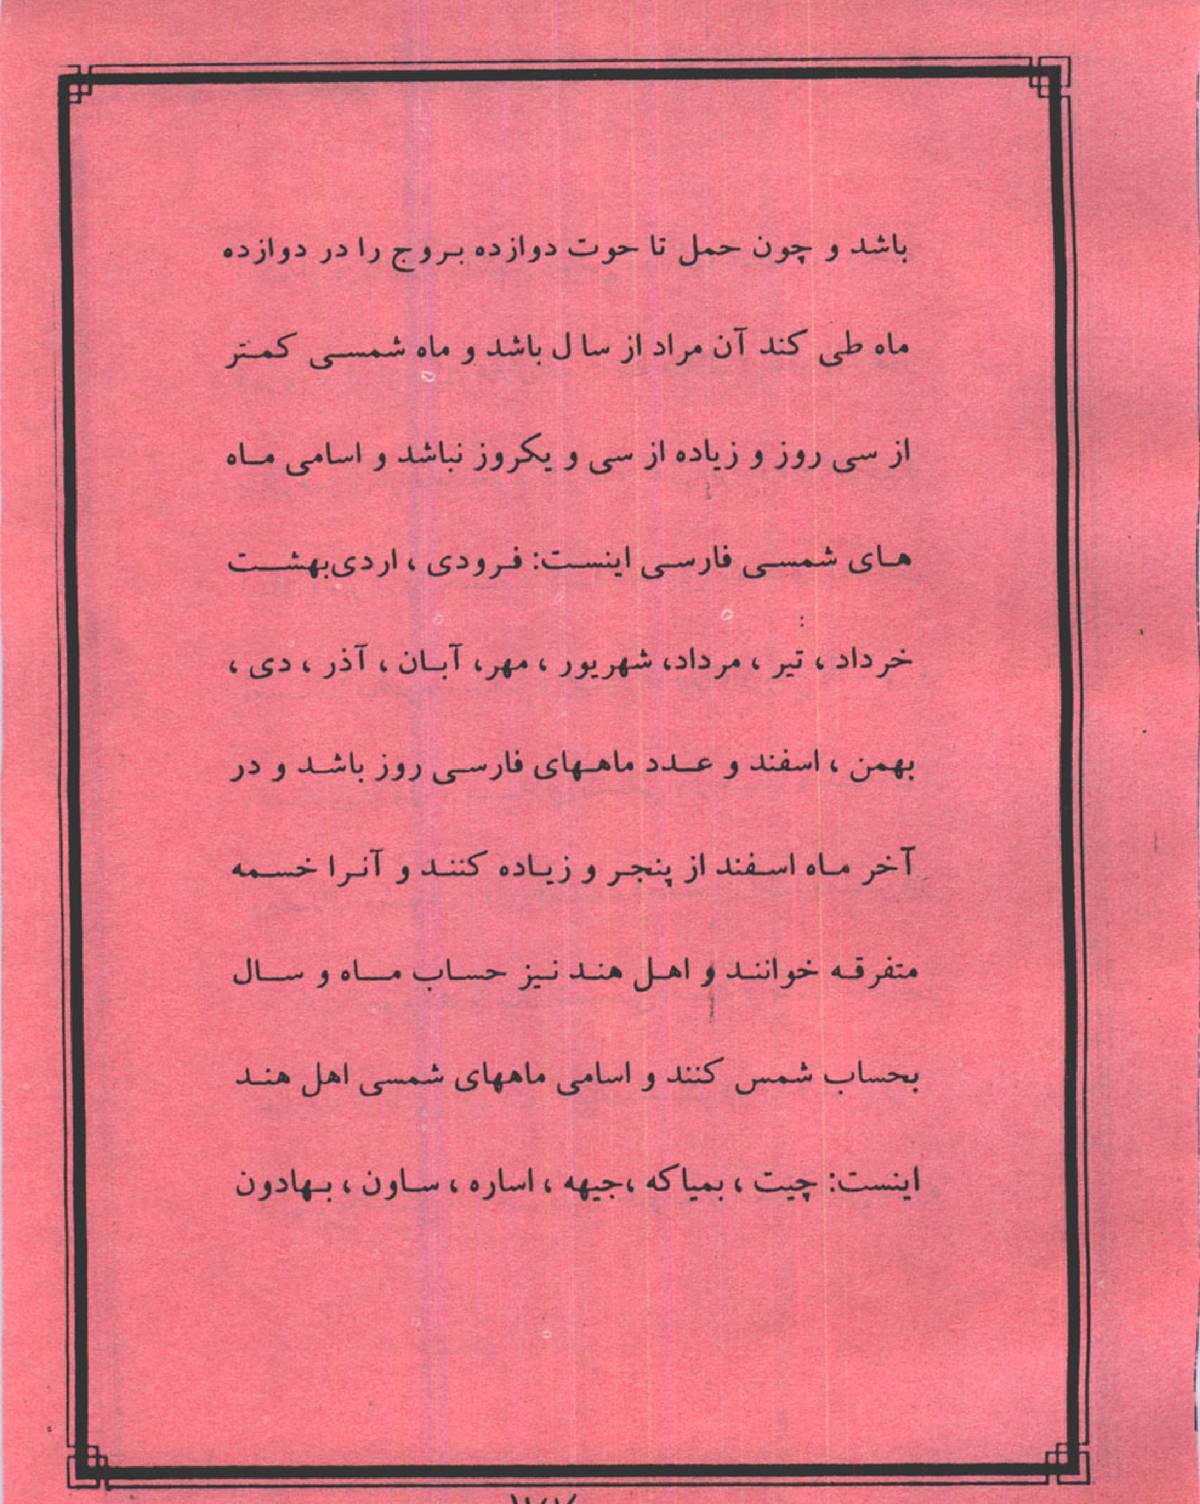 باشد و چون حمل تا حوت دوازده بروج را در دوازده
ماه طی کند آن مراد از سال باشد و ماه شمسی کمتر
از سی روز و زیاده از سی و یکروز نباشد و اسامی ماه
های شمسی فارسی اینست: فرودی ، اردی‌بهشت
خرداد ، تیر ، مرداد، شهریور ، مهر، آبان ، آذر ، دی ،
بهمن ، اسفند و عدد ماههای فارسی روز باشد و در
آخر ماه اسفند از پنجر و زیاده کنند و آنرا خسمه
متفرقه خوانند و اهل هند نیز حساب ماه و سال
بحساب شمس کنند و اسامی ماههای شمسی اهل هند
اینست: چیت ، بمیاکه ،جیهه ، اساره ، ساون ، بهادون